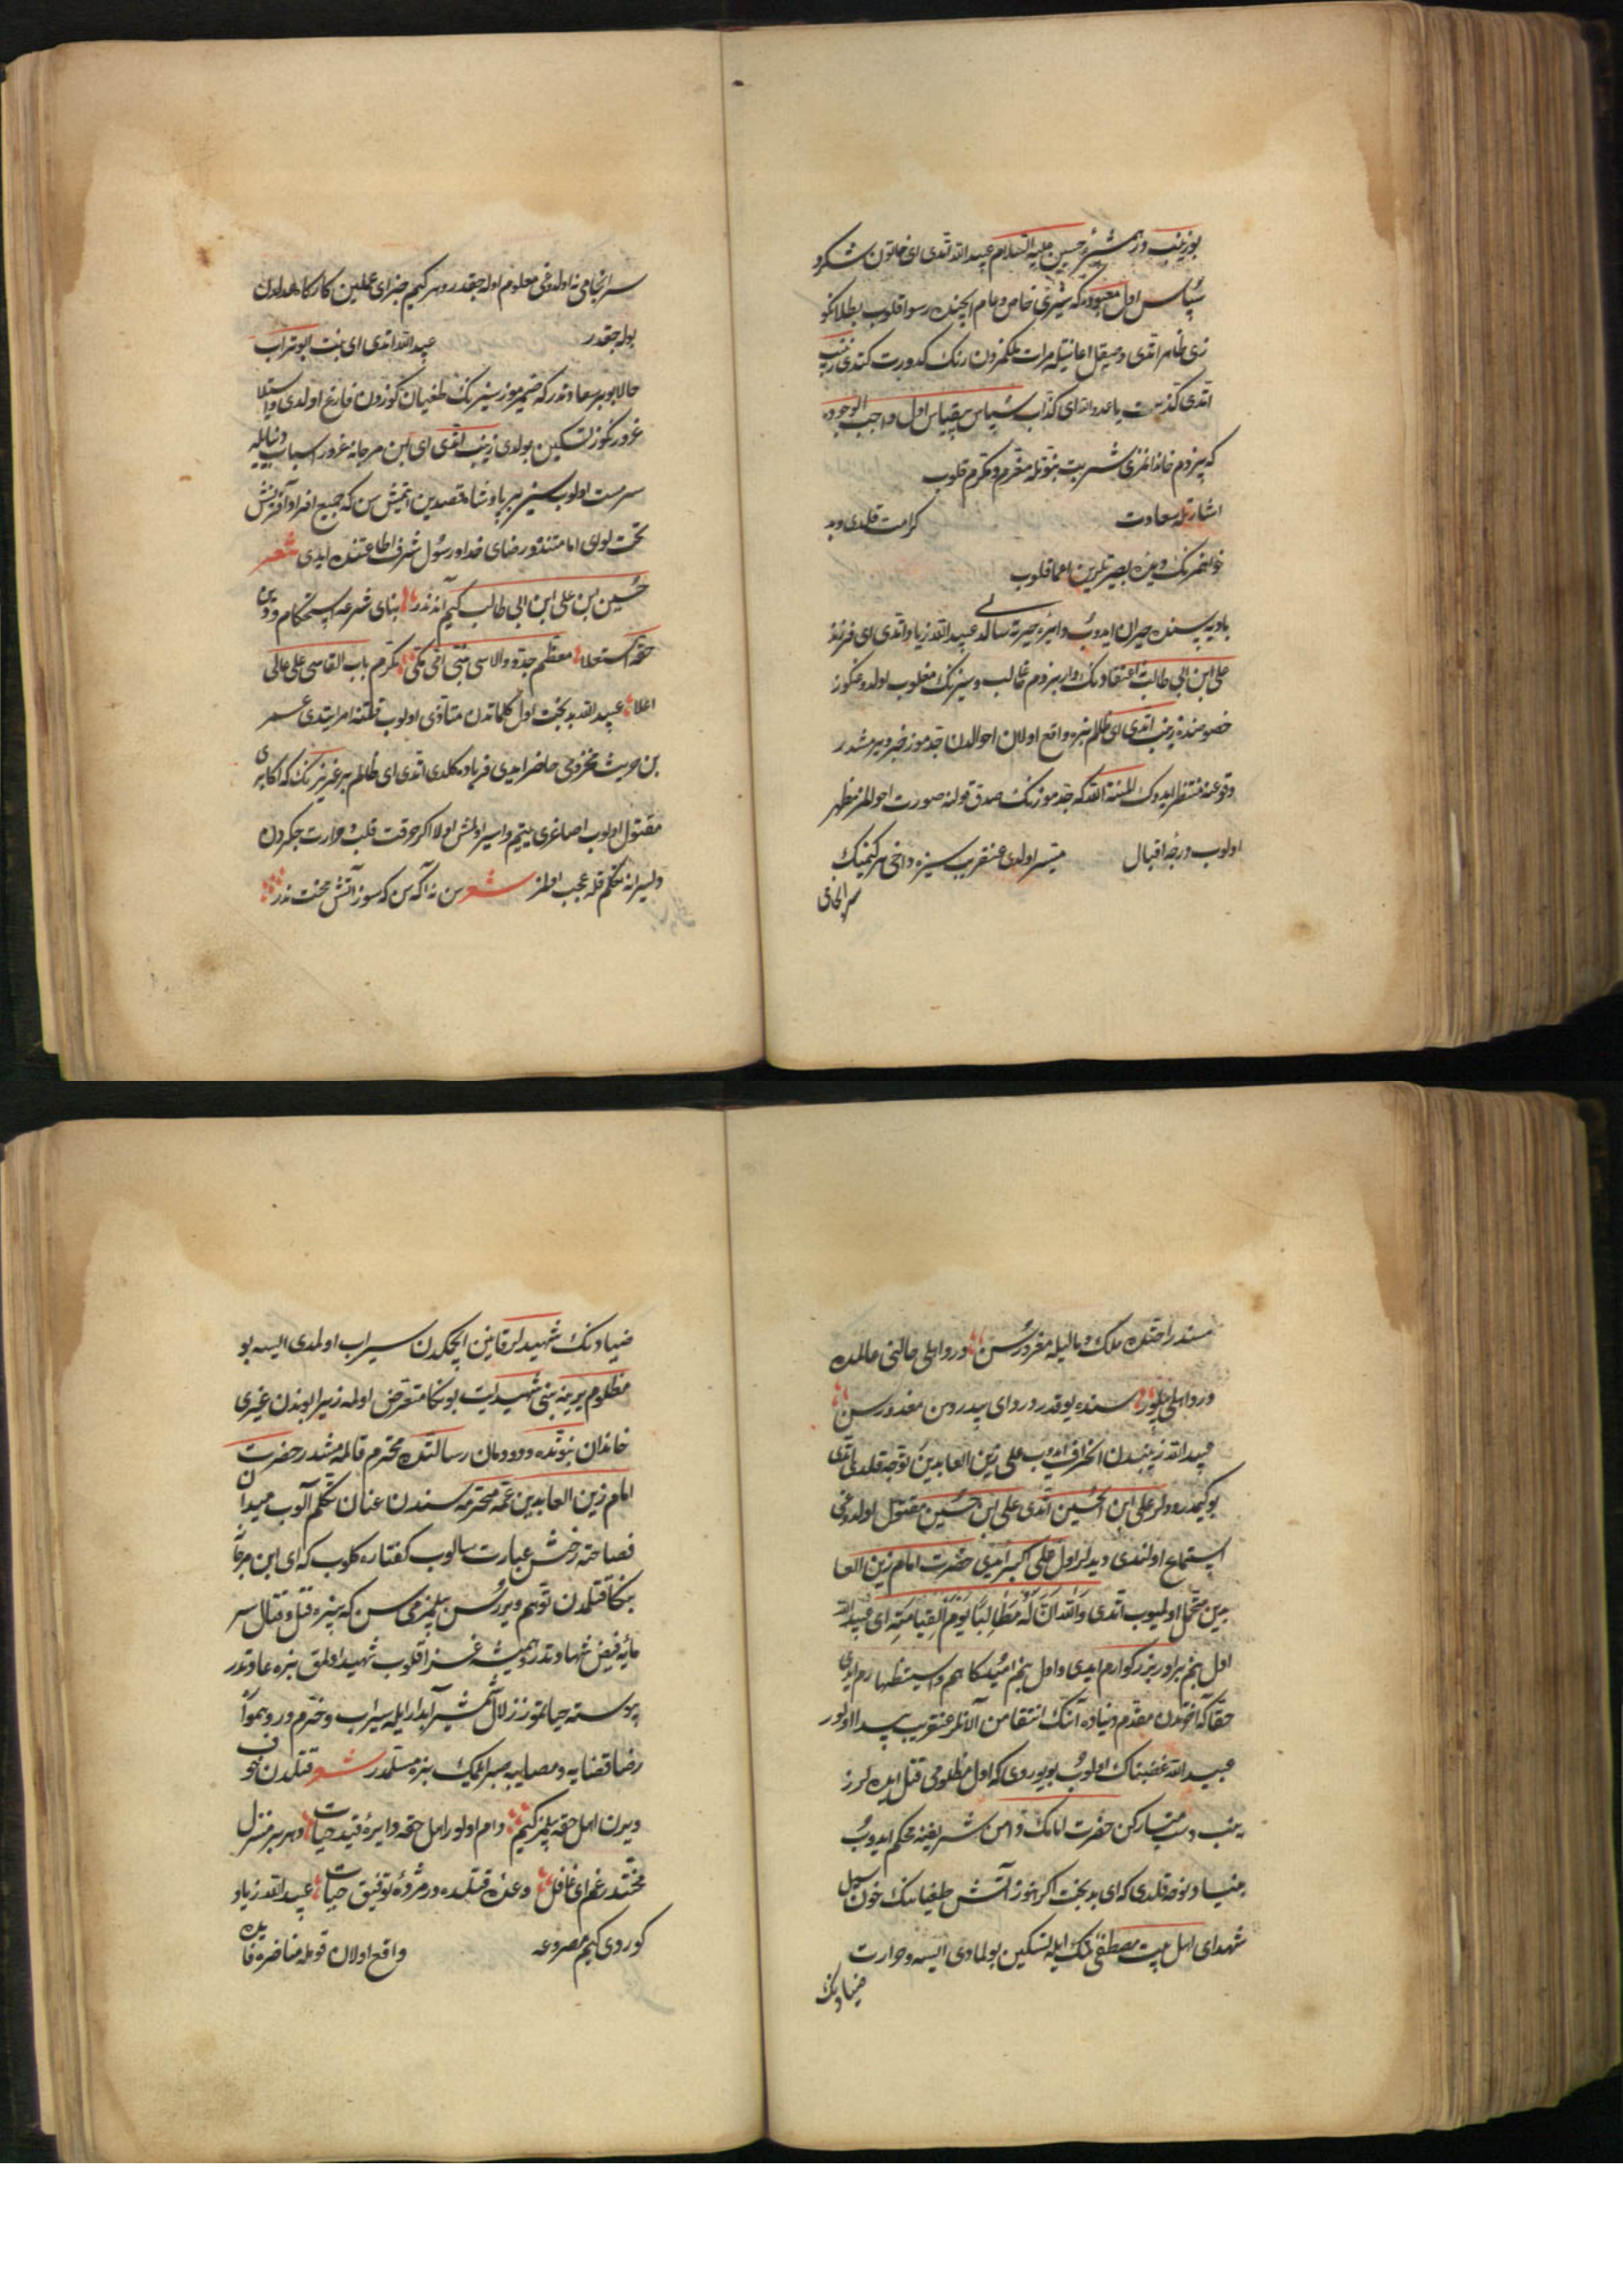 بو زینب در همشیرهٔ حسین علیه السلام عبیدالله اتدی ای خاتون شکر و
سپاس اول معبوده که سزی خاص و عام ایچنده رسوا قلوب بطلانکو
زی ظاهر اتدی و صیقل اعانتیله مرات ملکمزدن زنک کدورت کتدی زینب
اتدی کذبت یا عدو الله ای کذاب سپاس بیقیاس اول واجب الوجوده
که بیزدم خاندانمزی شربت نبوتله مغرم و مکرم قلوب
اشارتله سعادت کرامت قلدی و بد
خواهمزنک دیدهٔ بصیرتلرین اعما قلوب
بادیه سنده حیران ایدوب دایرهٔ حیرته سالدی عبیدالله زیاد اتدی ای فرزند
علی ابن ابی طالب اعتقادنک وار بزدم غالب و سزنک مغلوب اولدوغنکوز
خصوصنده زینب اتدی ای ظالم بزه واقع اولان احوالدن جدموز خبر ویرمشدر
وقوعنه منتظر ایدوک المنة لله که جدموزنک صدق قولنه صورت احوالمز مظهر
اولوب درجهٔ اقبال میسر اولدی عنقریب سیزه داخی هر کیمنک
سرانجامی
سرانجامی نه اولدوغی معلوم اوله جقدر و هر کیم جزای عملین کارکاه عدلدن
بوله جقدر عبیدالله اتدی ای بنت ابو تراب
حالا بو بر سعادتدر که ضمیرموز سیزنک طغیانکوزدن فارغ اولدی و استیلا
غرورکوز تسکین بولدی زینب اتدی ای ابن مرجانه غرور اسباب دنیا ایله
سرمست اولوب سیز بر پادشاه قصدین اتمیش سن که جمیع افراد آفرینش
تحت لوای امامتنده و رضای خدا و رسول شرف اطاعتنده ایدی شعر
حسین ابن علی ابن ابی طالب کیم آندندر بنای شرعه استحکام و دین
حقه استعلا معظم جدی والاسی نبی اتقی مکی مکرم باب القاسی علی عالی
اعلا عبیدالله بدبخت اول کلماتدن متاذی اولوب قتلنه امر ایتدی عمر
بن حریث مخزومی حاضر ایدی فریاده کلدی اتدی ای ظالم بر عزیزنک که اکابری
مقتول اولوب اصاغری یتیم و اسیر اولمش اولا اکر حرقت قلب و حرارت جکردن
دلیرانه تکلم قله عجب اولمز شعر سن نه آکه سن که سوز آتش محنت ندر
مسند راحتده ملک و مالیله مغرورسن درد اهلی حالنی عالمده
درد اهلی بیلور سنده یوقدر درد ای بیدرد سن معذورسن
عبیدالله زینبدن انحراف ایدوب علی زین العابدینه توجه قلدی اتدی
بو کیمدر دیدلر علی ابن الحسین اتدی علی ابن حسین مقتول اولدوغی
استماع اولندی دیدلر اول علی اکبر ایدی حضرت امام زین العا
بدین متحمل اولمیوب اتدی والله ان له مطالبا یوم القیامة ای عبیدالله
اول بنم برادر بزرکوارم ایدی و اول بنم امیدکاهم و استظهارم ایدی
حقا که آخرتدن مقدم دنیاده آنک انتقامن آلانلر عنقریب پیدا اولور
عبیدالله غضبناک اولوب بویوردی که اول مظلومی قتل ایده لر ز
ینب دست مبارکن حضرت امامک دامن شریفینه محکم ایدوب
بنیاد نوحه قلدی که ای بدبخت اکر هنوز آتش طغیاننک خون سیل
شهدای اهل بیت مصطفی نک ایله تسکین بولمادی ایسه و حرارت
ضیادنک
ضیادنک شهیدلر قانین ایچمکدن سیراب اولمدی ایسه بو
مظلوم یرینه بنی شهید ایت بونکا متعرض اولمه زیرا بوندن غیری
خاندان نبوتده و دودمان رسالتده محترم قالمه مشدر حضرت
امام زین العابدین عمهٔ محترمه سندن عنان تکلم آلوب میدان
فصاحته رخش عبارت سالوب کفتاره کلوب که ای ابن مرجانه
بنکا قتلدن توهم ویررسن بیلمزمی سن که بیزه قتل و قتال سر
مایهٔ فیض شهادتدر همیشه غزا قلوب شهید اولمق بزه عادتدر
پیوسته حیاتموز زلال شمشیر آبدار ایله سیراب و خرمدر و هموار
رضا قضایه و مصایبه صبر ایلمک بزه مسلمدر شعر قتلدن خوف
ویرن اهل حقه بیلمز کیم دام اولور اهل حقه دایرهٔ قید حیات و هر بر منزل
محنتدر غم ای غافل وعدهٔ قتلده در مژدهٔ توفیق حیات عبیدالله زیاد
کوردی کیم مصروعه واقع اولان قومله مناظره فایده